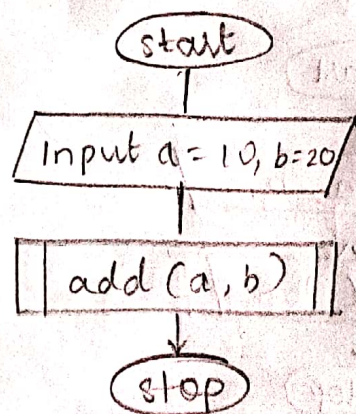 start
Input a = 10, b=20
add (a, b)
stop